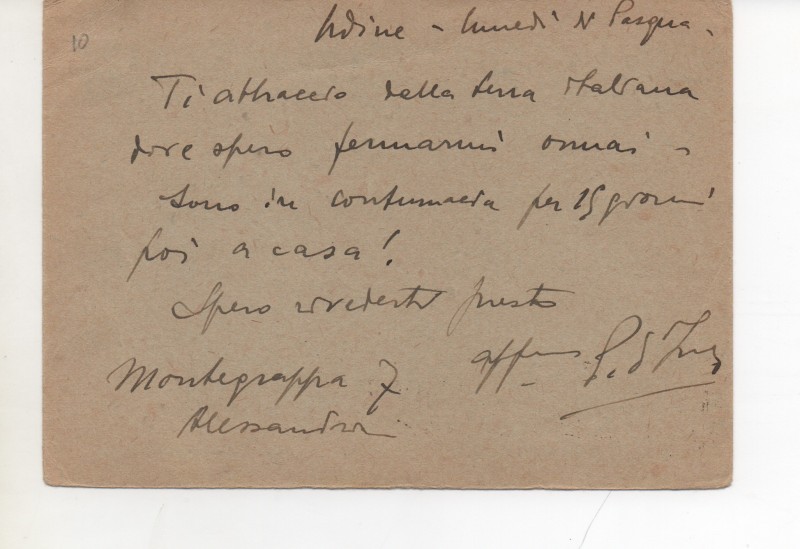 10
Udine - lunedì di Pasqua -
Ti abbraccio dalla terra italiana
dove spero fermarmi ormai -
Sono in contumacia per 15 giorni
poi a casa!
Spero rivederti presto
aff.mo
Montegrappa 7
Alessandria